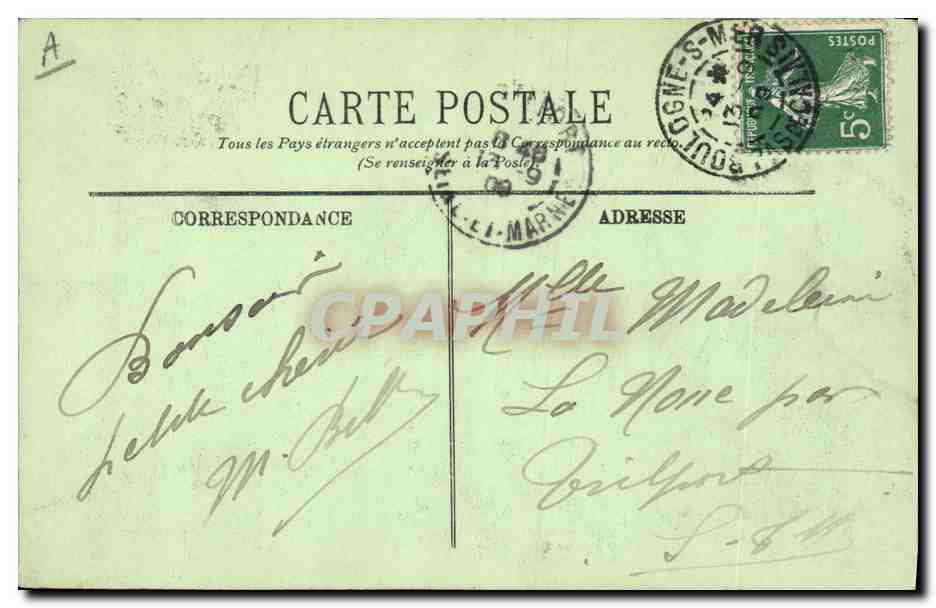 A
CARTE POSTALE
Tous les Pays étrangers n'acceptent pas la Correspondance au recto.
(Se renseigner à la Poste).
BOULOGNE-S-MER
POSTES
5c
CORRESPONDANCE
ADRESSE
SEINE-ET-MARNE
Bonsoir
petite chérie
M.
Mlle Madeleine
La Noue par
Trilport
S-&M
CPAPHIL